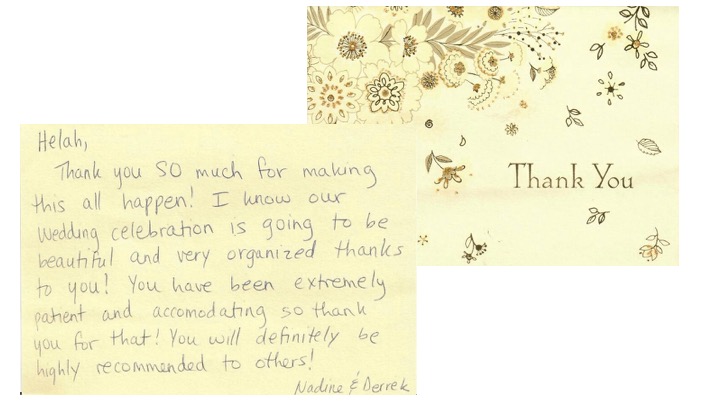 Helah,
Thank you SO much for making
this all happen! I know our
wedding celebration is going to be
beautiful and very organized thanks
to you! You have been extremely
patient and accomodating so thank
you for that! You will definitely be
highly recommended to others!
Nadine & Derrek
Thank You